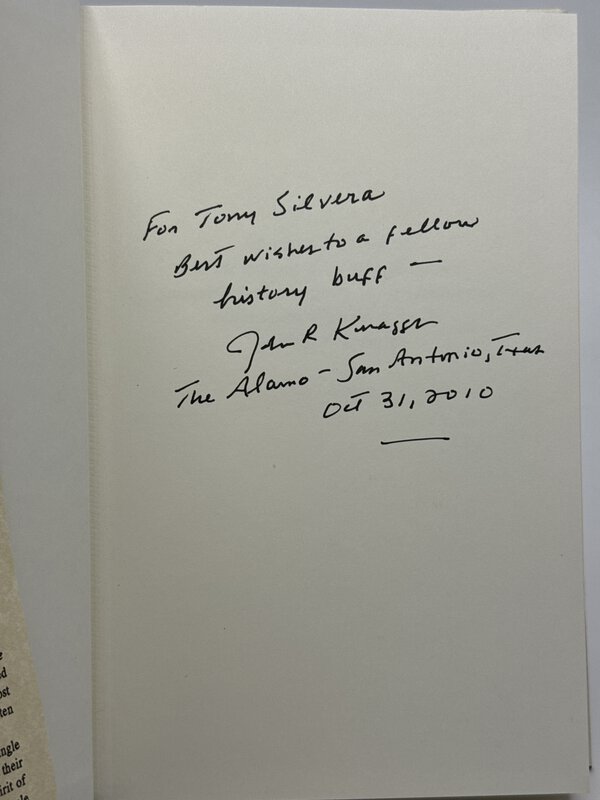 For Tony Silvera
Best wishes to a fellow
history buff —
John R Knaggs
The Alamo - San Antonio, Texas
Oct 31, 2010
ost
ten
ngle
their
irit of